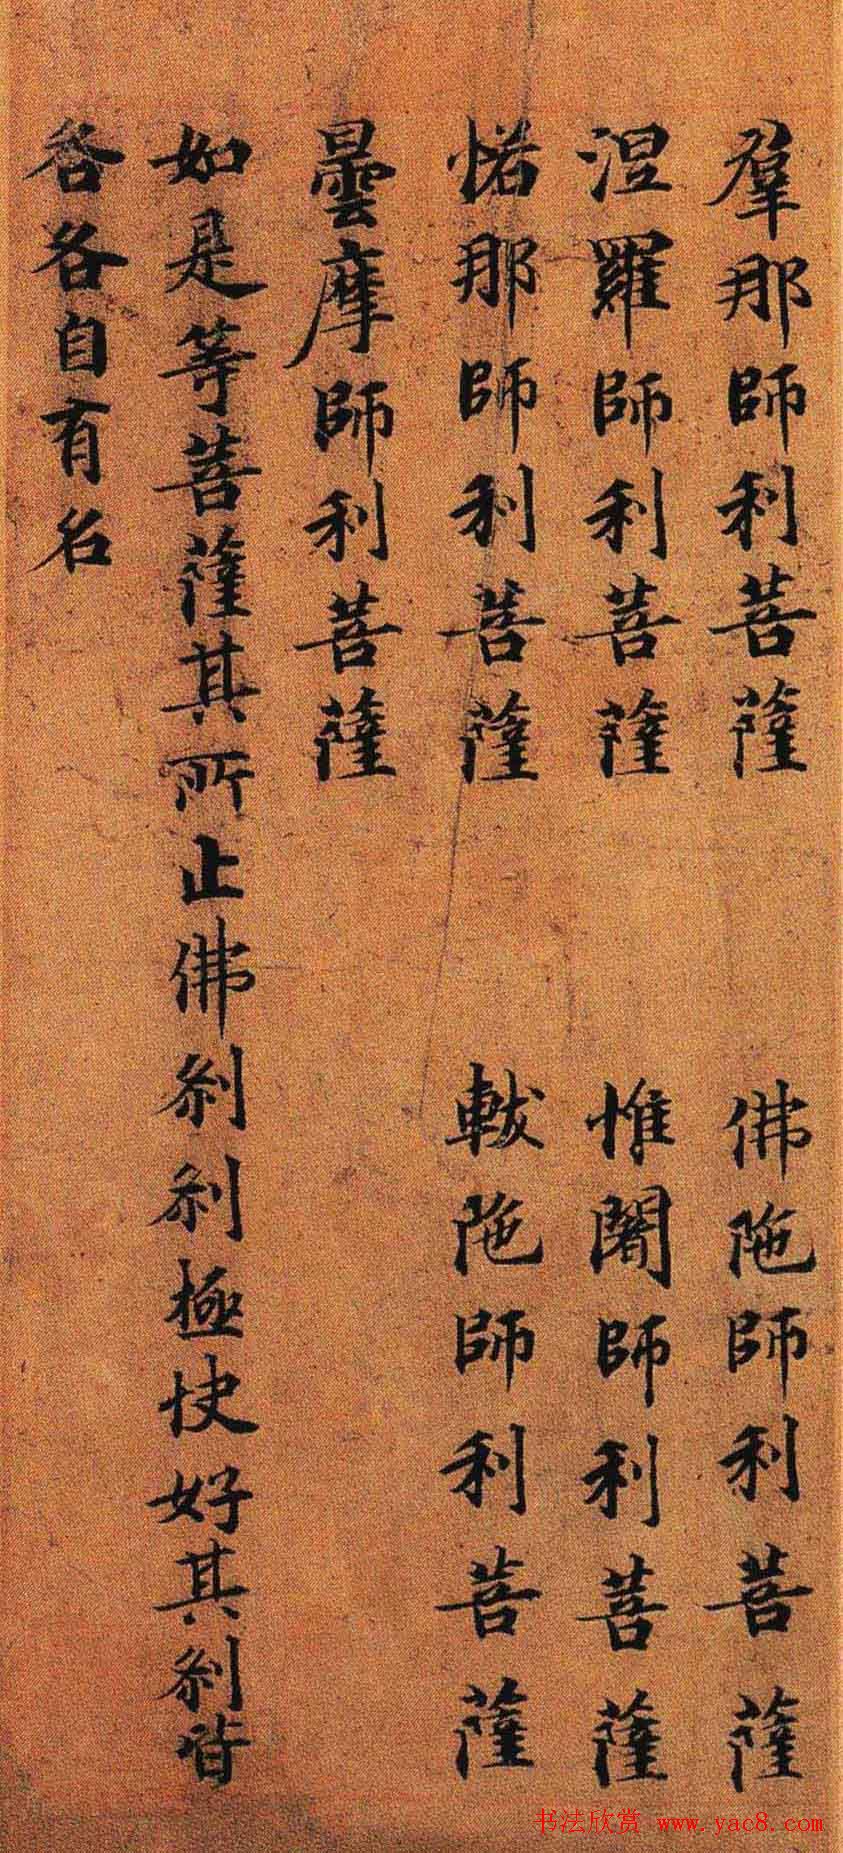 羣那師利菩薩 佛陁師利菩薩
涅羅師利菩薩 惟闍師利菩薩
那師利菩薩 軷陁師利菩薩
曇摩師利菩薩
如是等菩薩其所止佛剎剎極快好其剎皆
各各自有名
书法欣赏 www.yac8.com